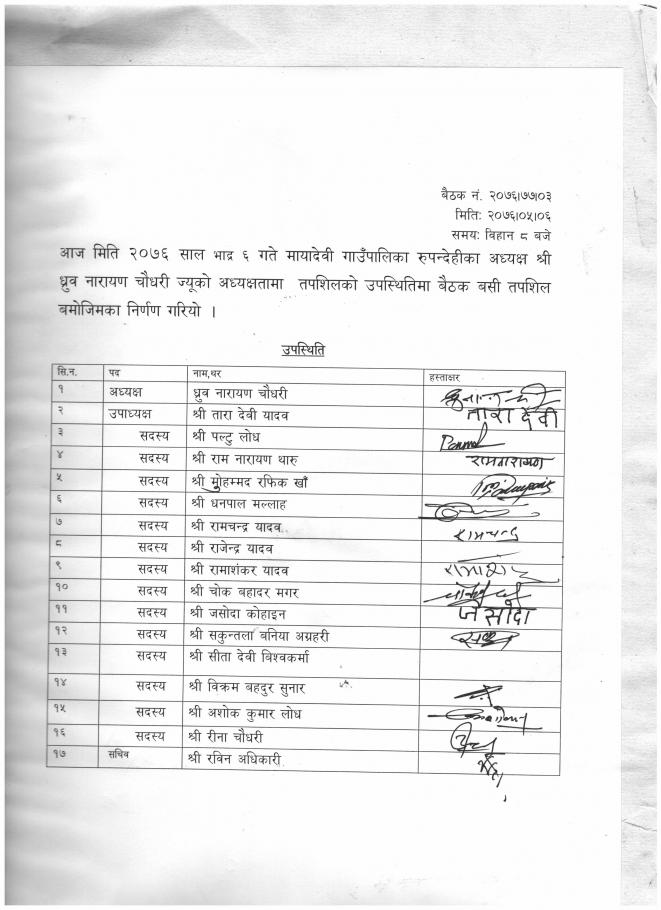 बैठक नं. २०७६।७७।०३
मिति: २०७६।०५।०६
समय: विहान ८ बजे
आज मिति २०७६ साल भाद्र ६ गते मायादेवी गाउँपालिका रुपन्देहीका अध्यक्ष श्री
ध्रुव नारायण चौधरी ज्यूको अध्यक्षतामा तपशिलको उपस्थितिमा बैठक बसी तपशिल
बमोजिमका निर्णण गरियो ।
उपस्थिति
सि.न. पद नाम,थर हस्ताक्षर
१ अध्यक्ष ध्रुव नारायण चौधरी
२ उपाध्यक्ष श्री तारा देवी यादव तारा देवी
३ सदस्य श्री पल्टु लोध
४ सदस्य श्री राम नारायण थारु रामनारायण
५ सदस्य श्री मुोहम्मद रफिक खाँ
६ सदस्य श्री धनपाल मल्लाह
७ सदस्य श्री रामचन्द्र यादव रामचन्द्र
८ सदस्य श्री राजेन्द्र यादव
९ सदस्य श्री रामाशंकर यादव
१० सदस्य श्री चोक बहादर मगर
११ सदस्य श्री जसोदा कोहाइन जैसोदा
१२ सदस्य श्री सकुन्तला बनिया अग्रहरी
१३ सदस्य श्री सीता देवी विश्वकर्मा
१४ सदस्य श्री विक्रम बहदुर सुनार
१५ सदस्य श्री अशोक कुमार लोध
१६ सदस्य श्री रीना चौधरी
१७ सचिव श्री रविन अधिकारी